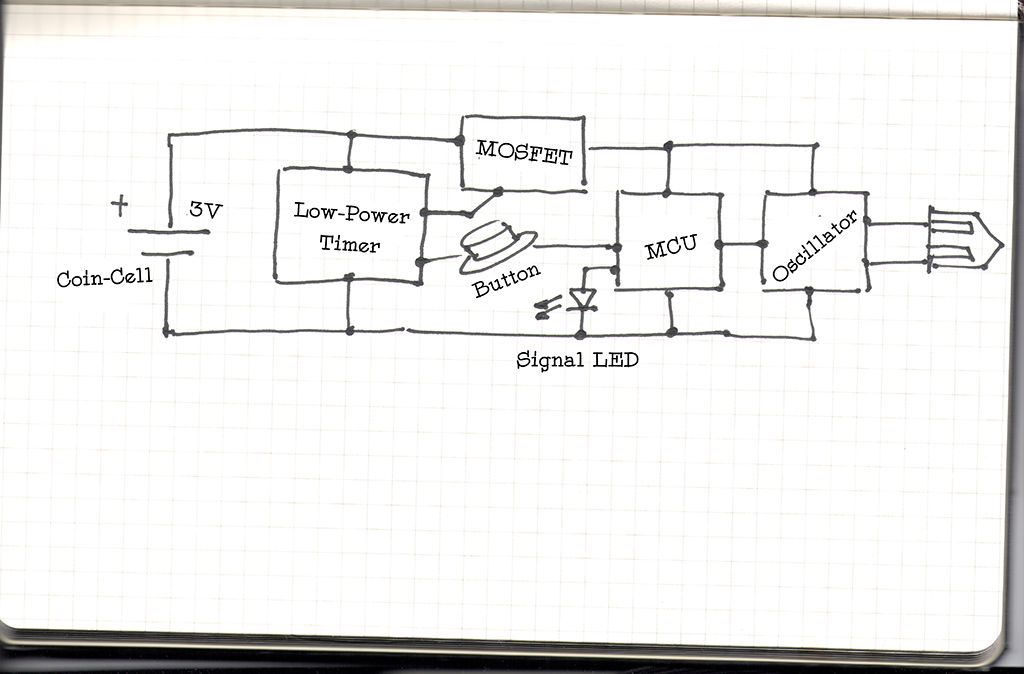 MOSFET
+
3V
Low-Power
Timer
MCU
Oscillator
Coin-Cell
Button
Signal LED